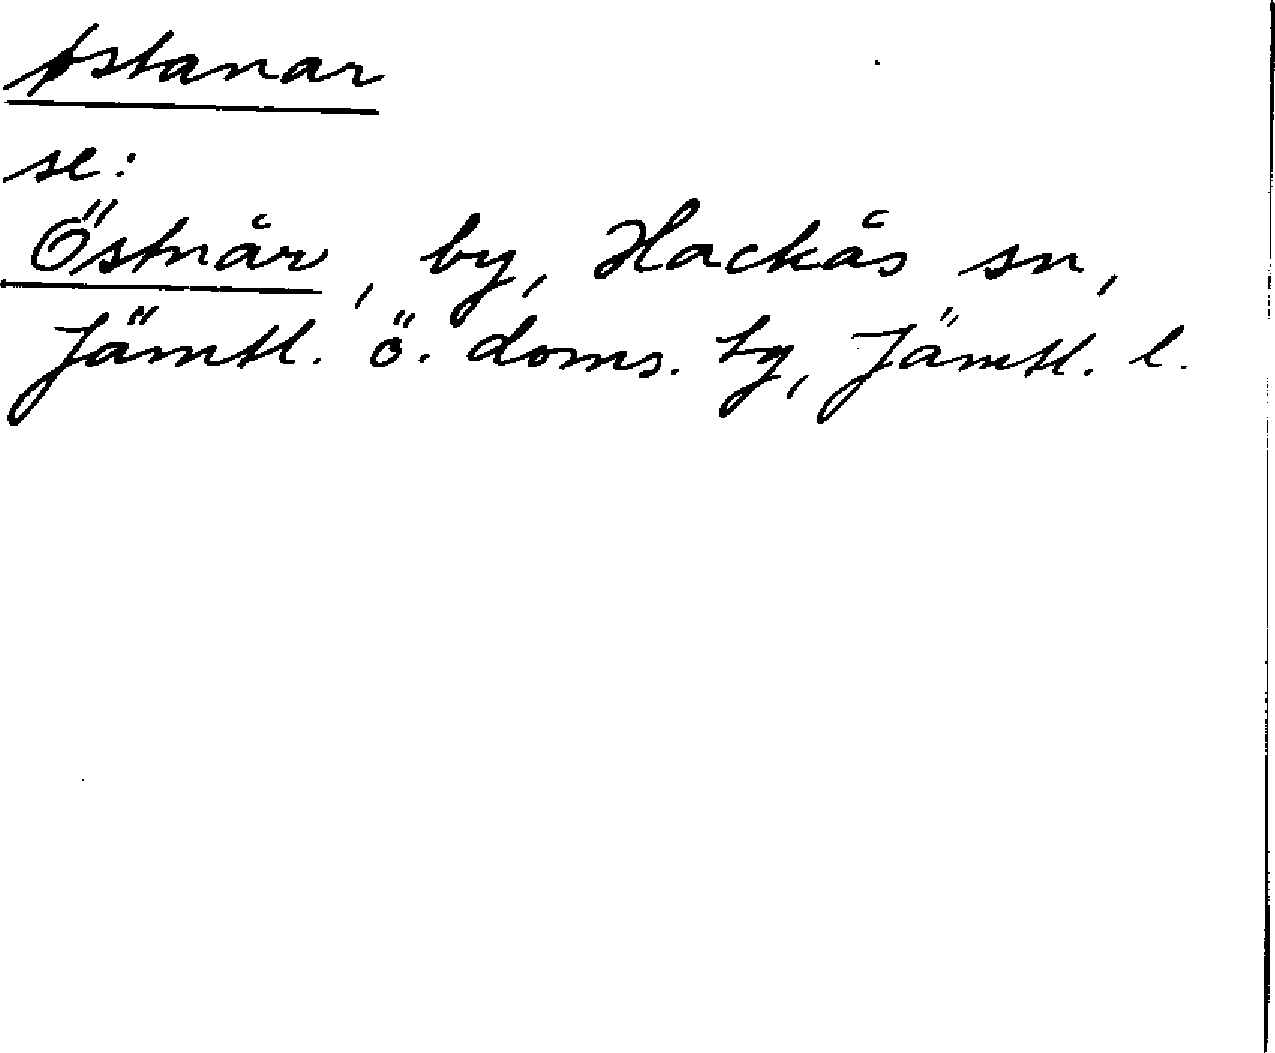 østanar
se:
Östnår, by, Hackås sn,
Jämtl. ö. doms. tg, Jämtl. l.